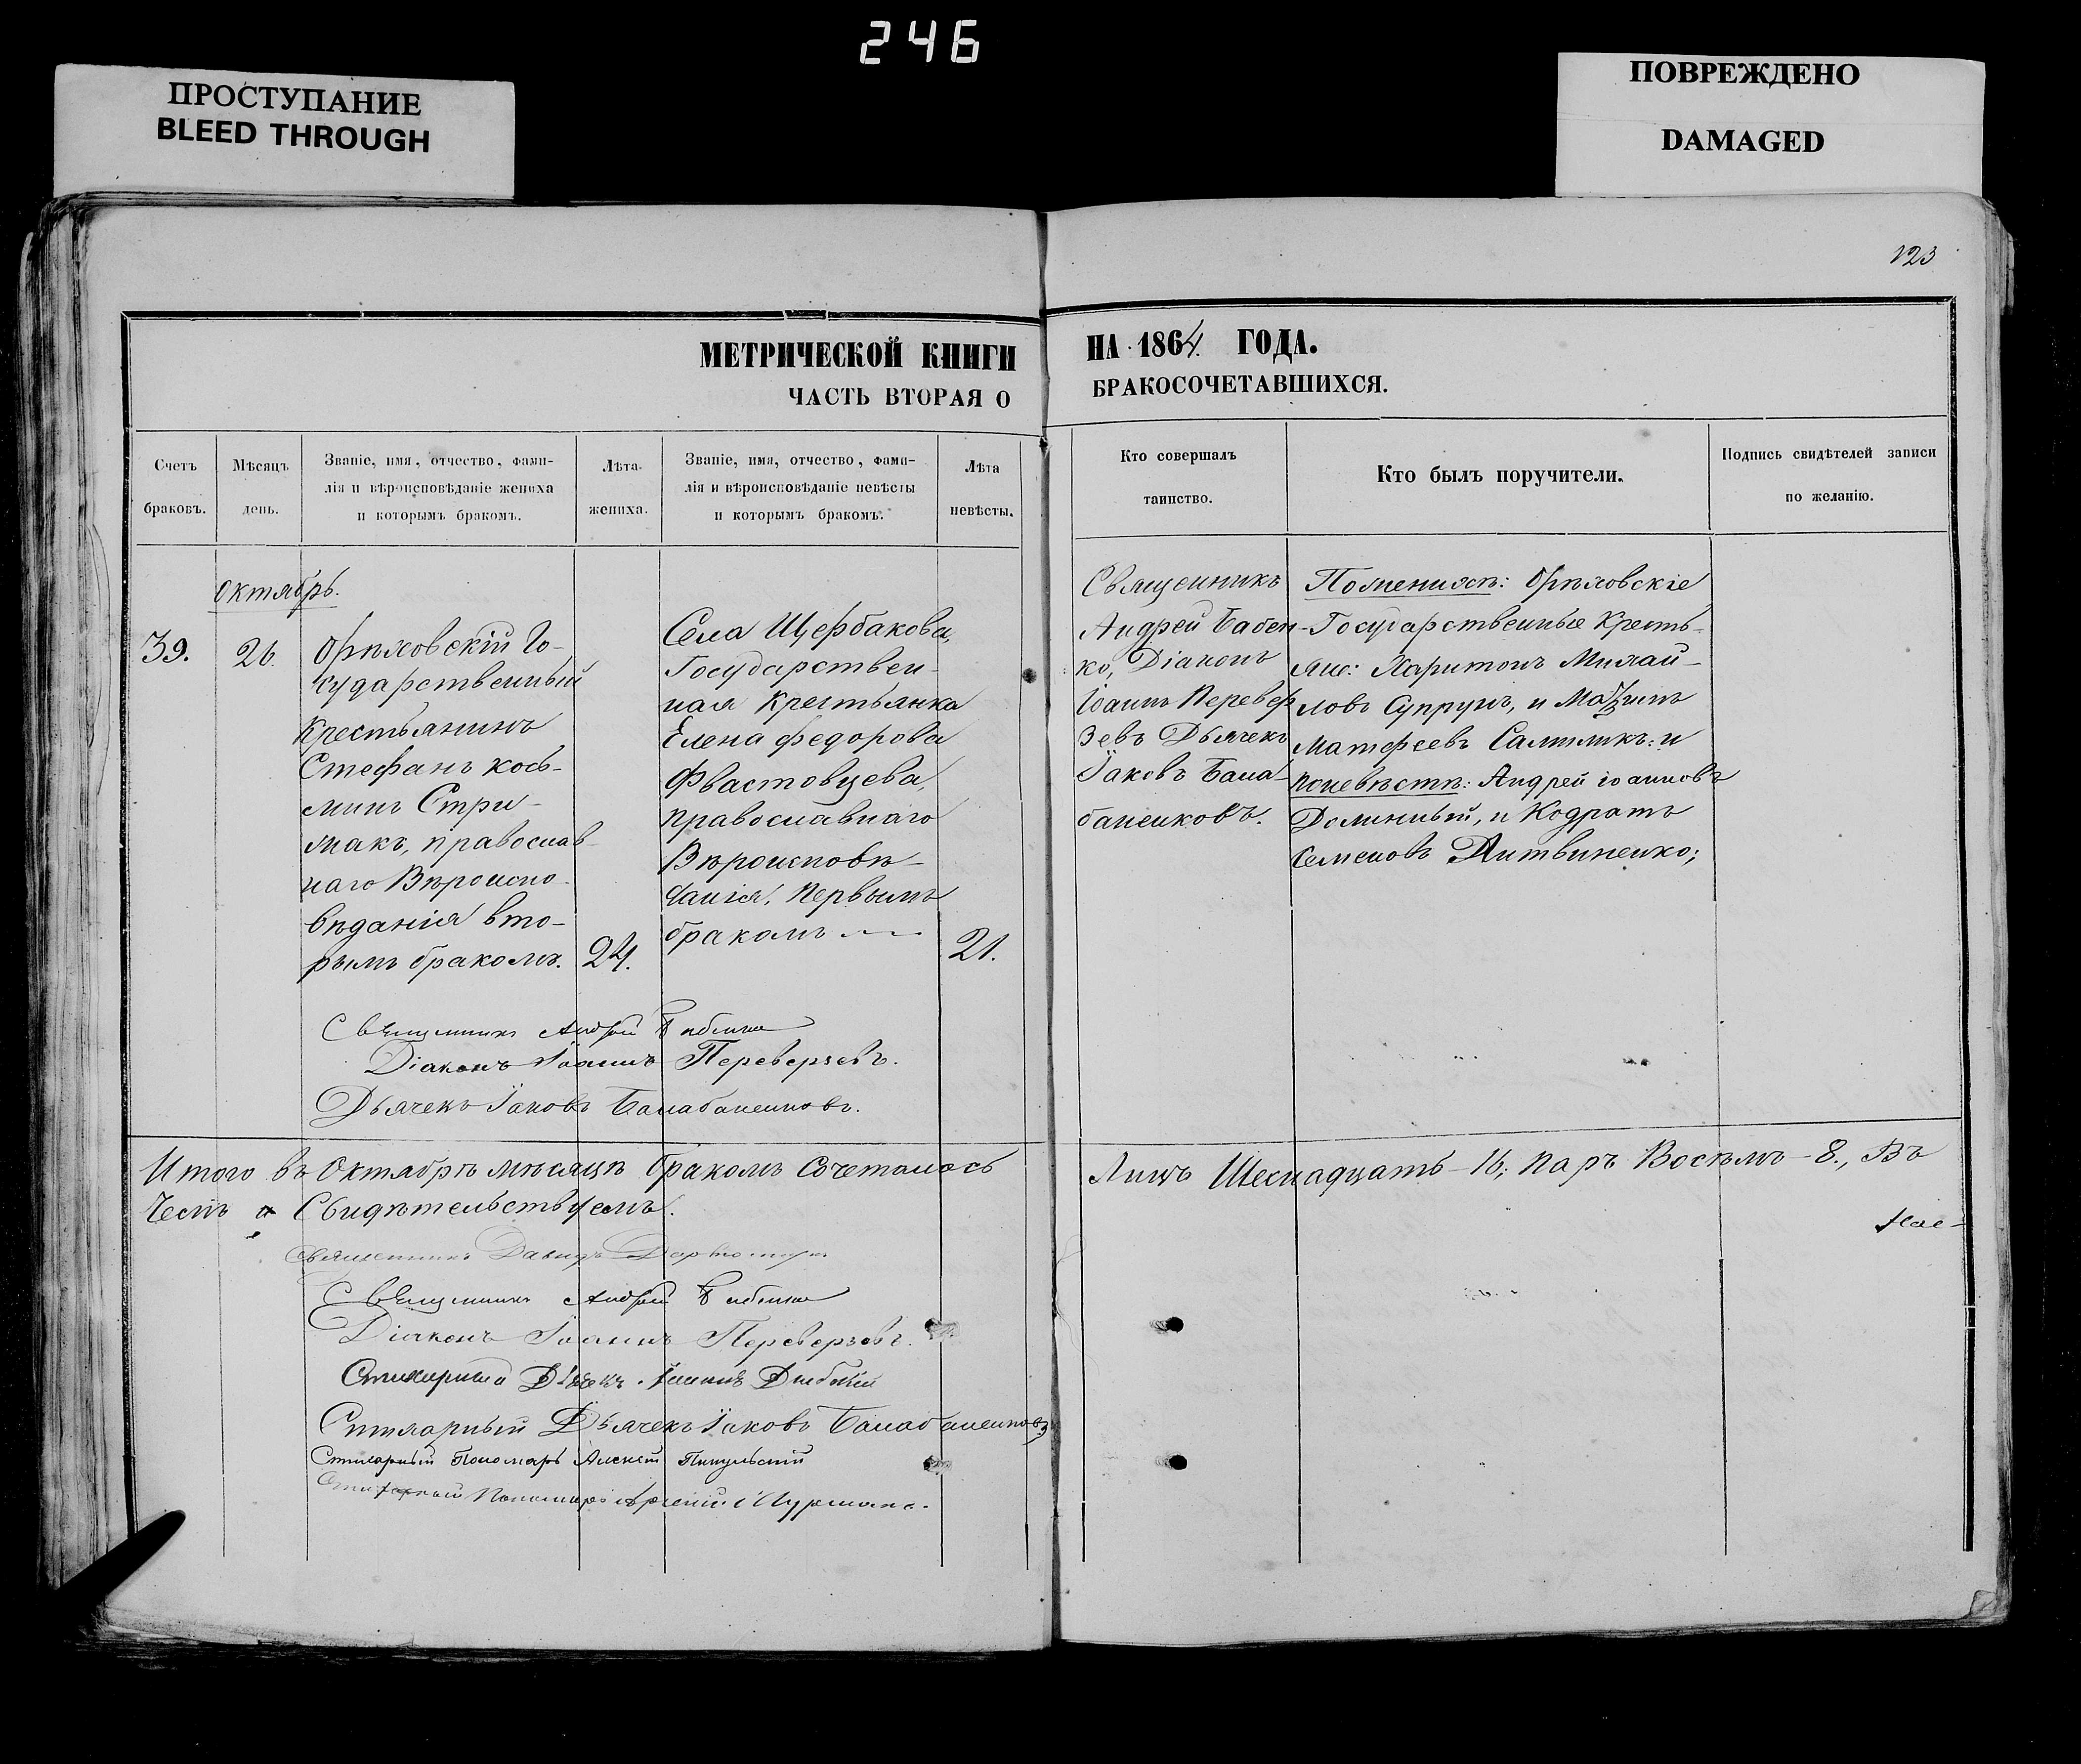 246
ПРОСТУПАНИЕ
BLEED THROUGH
ПОВРЕЖДЕНО
DAMAGED
123
МЕТРИЧЕСКОЙ КНИГИ НА 1864 ГОДА.
ЧАСТЬ ВТОРАЯ О БРАКОСОЧЕТАВШИХСЯ.
Счетъ
браковъ.
Мѣсяцъ
день.
Званіе, имя, отчество, фами-
лія и вѣроисповѣданіе жениха
и которымъ бракомъ.
Лѣта
жениха.
Званіе, имя, отчество, фами-
лія и вѣроисповѣданіе невѣсты
и которымъ бракомъ.
Лѣта
невѣсты.
Кто совершалъ
таинство.
Кто былъ поручители.
Подпись свидѣтелей записи
по желанію.
Октябрь.
39.
26.
Орѣховскій Го-
сударственный
Крестьянинъ
Стефанъ Кось-
минъ Стри-
жакъ, православ-
наго Вѣроиспо-
вѣданія вто-
рымъ бракомъ.
24.
Села Щербакова,
Государствен-
ная Крестьянка
Елена Федорова
Фвастовцева,
православнаго
Вѣроисповѣ-
данія, Первымъ
бракомъ
21.
Священникъ
Андрей Бабен-
ко, Діаконъ
Іоаннъ Перевер
зевъ Дьячекъ
Іаковъ Бала-
баненковъ.
Поженихѣ: Орѣховскіе
Государственные Кресть-
яне: Харитонъ Михай-
ловъ Супрунъ, и Мазимъ
Матфеевъ Салтликъ: и
поневѣстѣ: Андрей Іоанновъ
Долинный, и Кодратъ
Семеновъ Литвиненко;
Священникъ Андрей Бабенко
Діаконъ Іоаннъ Переверзевъ.
Дьячекъ Іаковъ Балабаненковъ.
Итого въ Октябрѣ мѣсяцѣ бракомъ сочеталось Лицъ Шеснадцать-16; паръ Восѣмъ-8., Въ
Чемъ и Свидѣтельствуемъ.
Ное-
Священникъ Давидъ
Священникъ Андрей Бабенко
Діаконъ Іоаннъ Переверзевъ.
Стихарный Дьячекъ Іоаннъ
Стихарный Дьячекъ Іаковъ Балабаненковъ
Стихарный Пономарь Алексій
Стихарный Пономарь